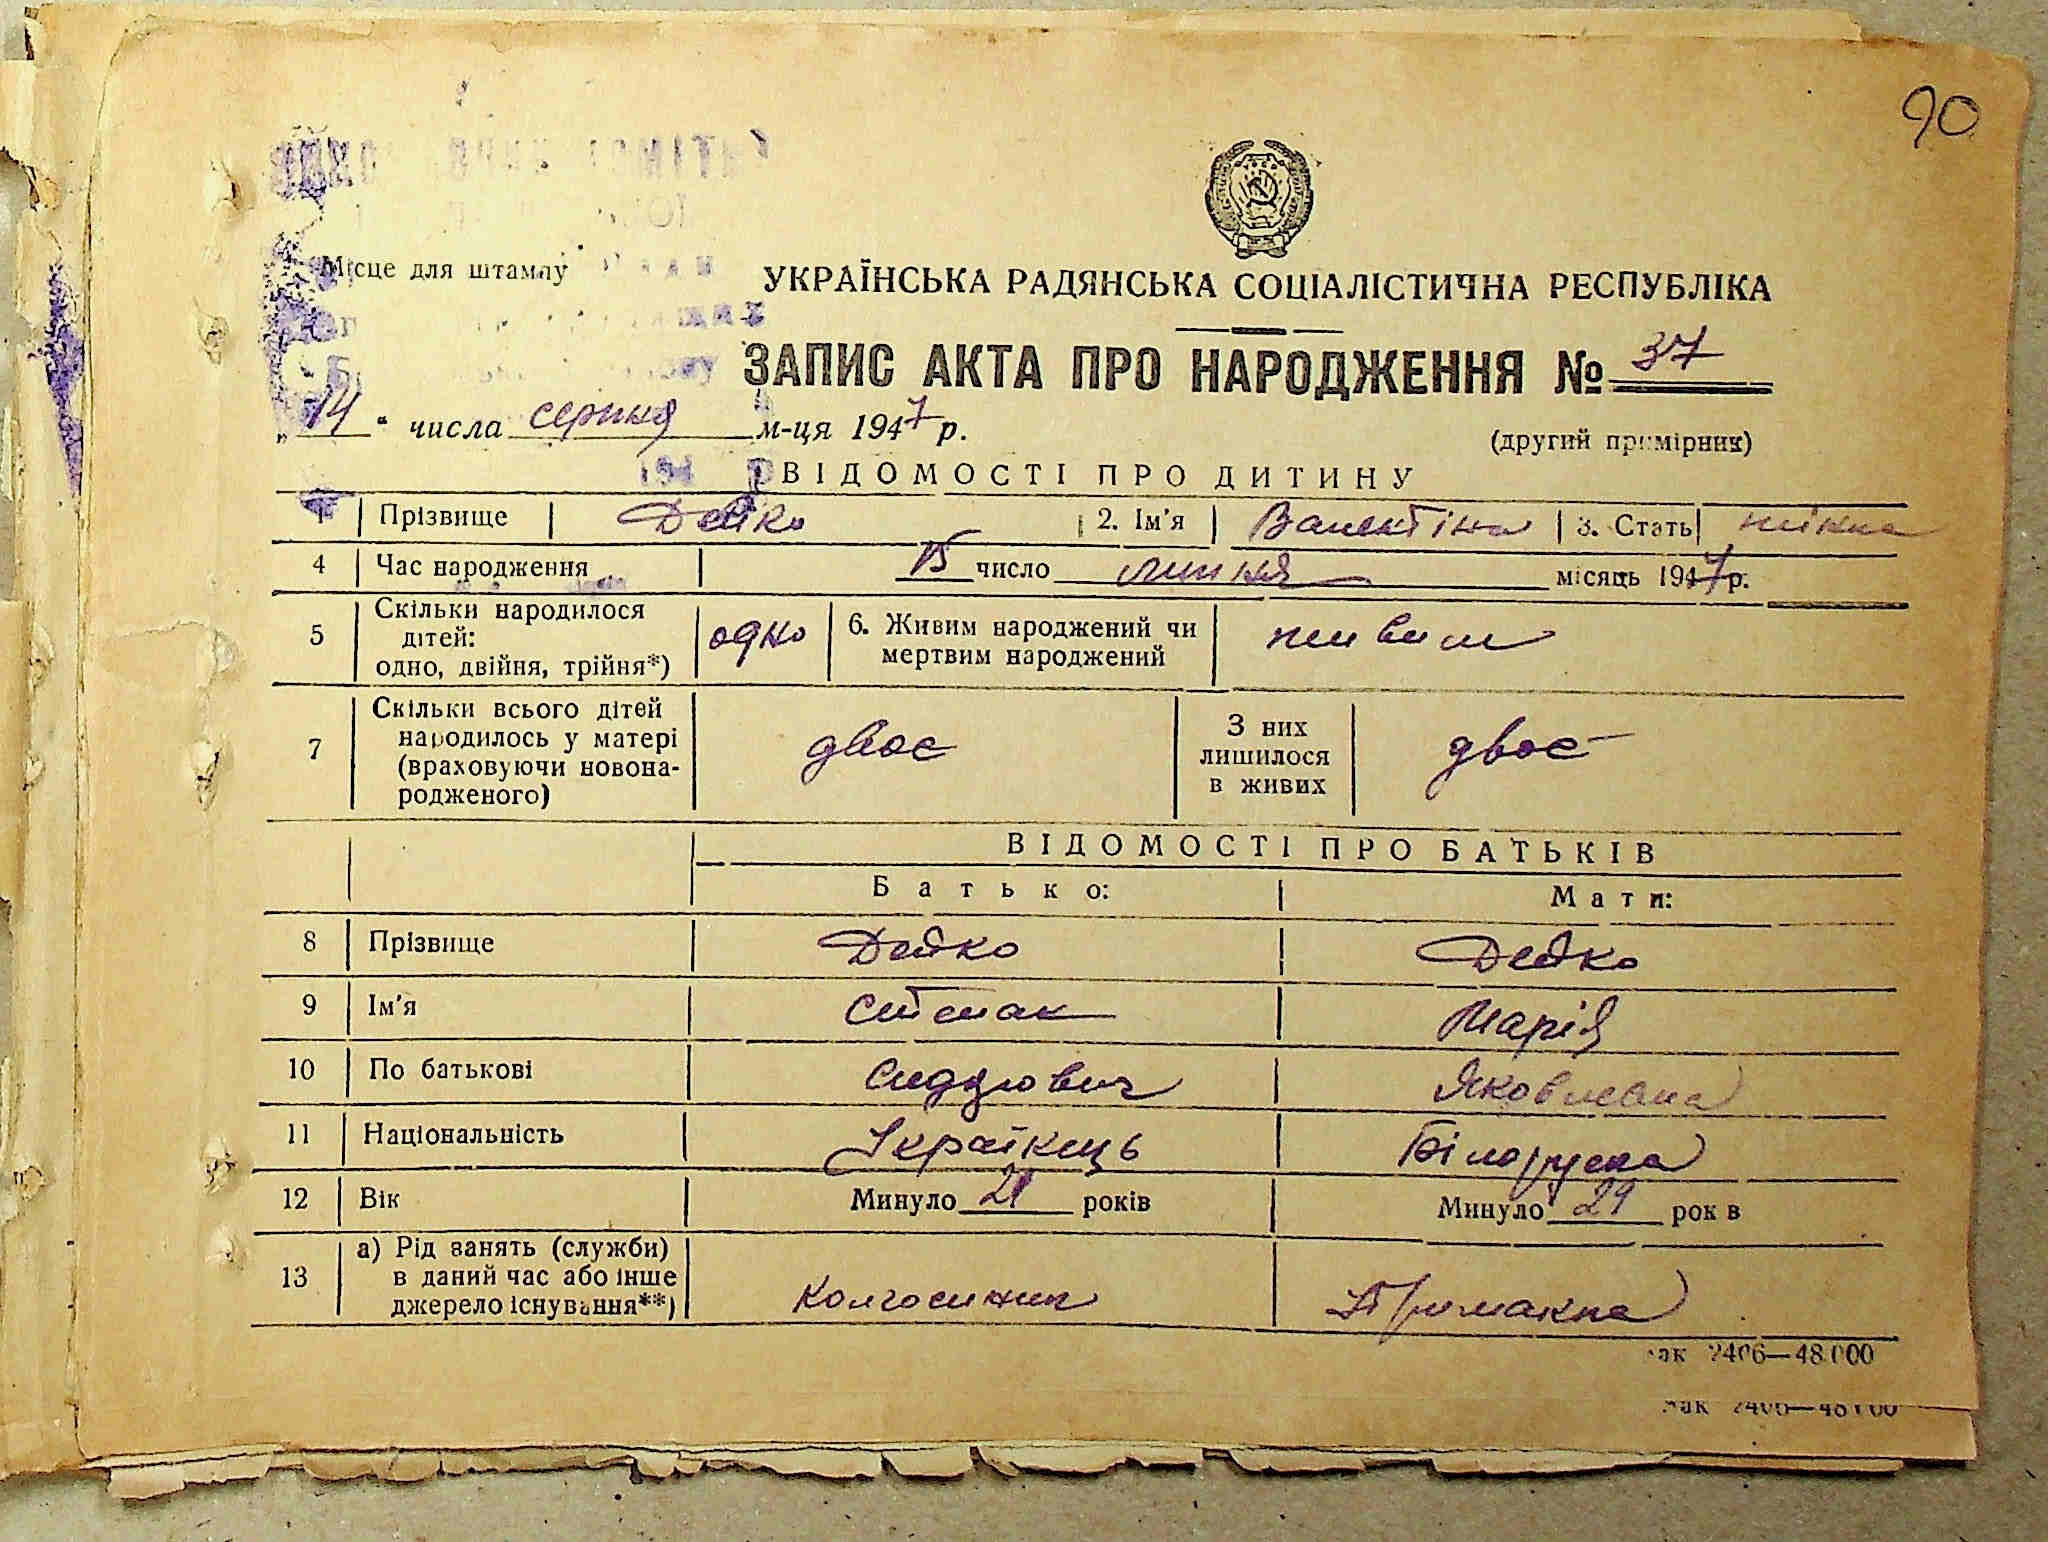 90
Місце для штампу
УКРАЇНСЬКА РАДЯНСЬКА СОЦІАЛІСТИЧНА РЕСПУБЛІКА
ЗАПИС АКТА ПРО НАРОДЖЕННЯ № 37
„14“ числа серпня м-ця 1947 р.
(другий примірник)
ВІДОМОСТІ ПРО ДИТИНУ
1 Прізвище Дейко 2. Ім'я Валентіна 3. Стать жіноча
4 Час народження 15 число липня місяць 1947 р.
5 Скільки народилося дітей: одно, двійня, трійня*) одно 6. Живим народжений чи мертвим народжений живим
7 Скільки всього дітей народилось у матері (враховуючи новонародженого) двоє З них лишилося в живих двоє
ВІДОМОСТІ ПРО БАТЬКІВ
Батько: Мати:
8 Прізвище Дейко Дейко
9 Ім'я Степан Марія
10 По батькові Яковлевна
11 Національність Українець Білоруска
12 Вік Минуло 21 років Минуло 29 рок в
13 а) Рід занять (служби) в даний час або інше джерело існування**) Колгоспник
Зак 2406—48.000